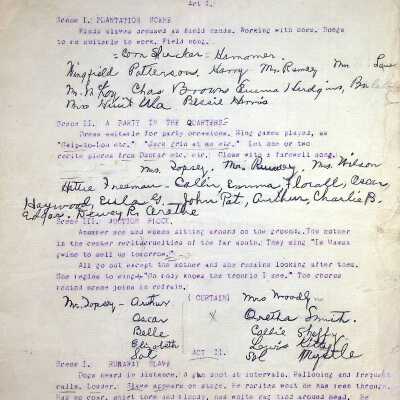 Act I.
Scene I. PLANTATION SCENE
slaves dressed as field hands. Working with hoes. Songs
to be suitable to work. Field song.
Corn Shucker = Hamomer.
Wingfield Patterson, Harry Mr. Ramsey Mr.
Mr. McKoy Chas Browns Emma Hudgins,
Mrs Ella Bessie Harris
Scene II. A PARTY IN THE QUARTERS
Dress suitable for party occasions. Ring games played, as
"Skip-to-Lou etc." "Jack grin at me etc." Let one or two
recite pieces from Dunbar etc. etc. Close with a farewell song.
Mrs. Topsey. Mr. Rumsey. Mrs. Wilson
Hattie Freeman - Callie, Emma, Florall, Oscar,
Haywood, Eula G. - John Pat, Arthur, Charlie B.
Edgar. Dewey R. Arethe
Scene III. AUCTION BLOCK.
Another men and women sitting around on the ground. The mother
in the center recites cruelties of the far south. They sing "Is Massa
gwine to sell us tomorrow."
All go out except the mother and she remains looking after them.
She begins to sing "No body knows the trouble I see." The chorus
behind scene joins in refrain.
Mr. Topsey - Arthur (CURTAIN) Mrs Moody
Oscar X Aretha Smith.
Belle Callie
Elizabeth Lewis
Sol ACT II. Sol Myrtle
Scene I. RUNAWAY SLAVE
Dogs heard in distance. A gun shot at intervals. Hallooing and frequent
calls. Louder. Slave appears on stage. He recites what he has been through.
Has no coat, shirt torn and bloody, has white rag tied around head. He